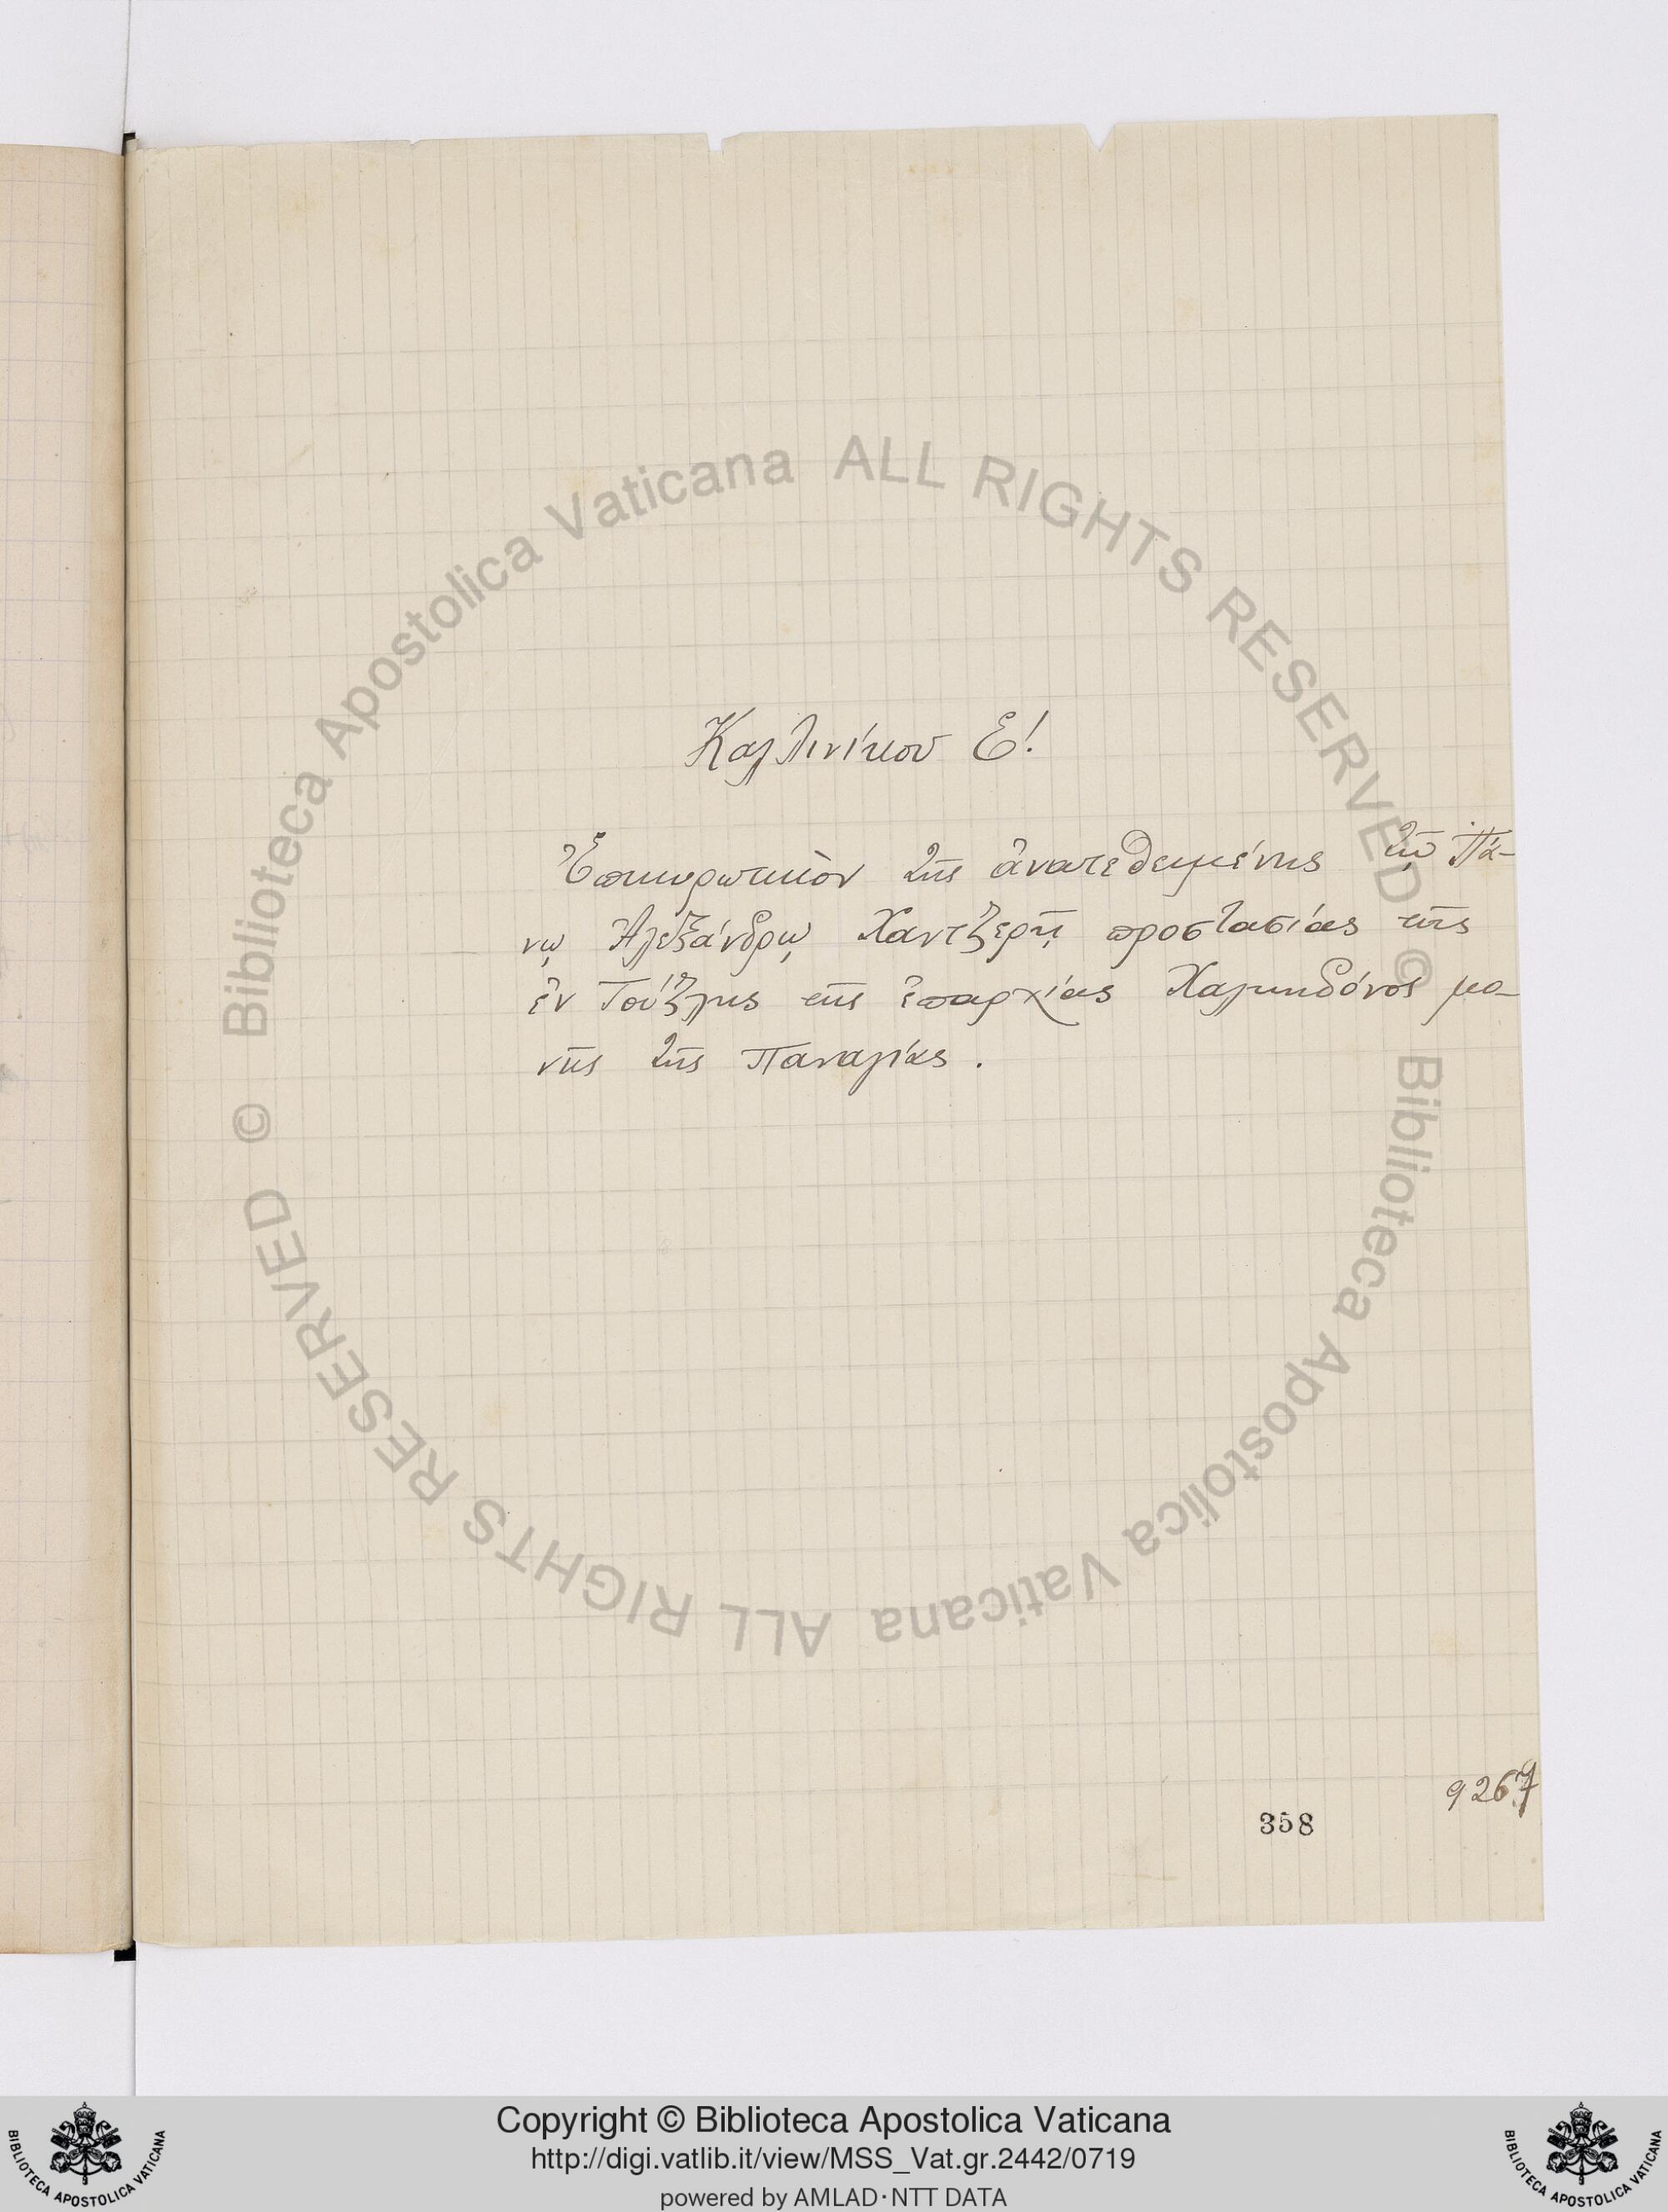 Καλλινίκου Ε΄.
Ἐπικυρωτικὸν τῆς ἀνατεθειμένης τῷ Πά-
νῳ Ἀλεξάνδρῳ Χαντζερῇ προστασίας τῆς
ἐν Τούζλῃς τῆς ἐπαρχίας Χαλκηδόνος μο-
νῆς τῆς Παναγίας.
9267
358
© Biblioteca Apostolica Vaticana ALL RIGHTS RESERVED
© Biblioteca Apostolica Vaticana ALL RIGHTS RESERVED
Copyright © Biblioteca Apostolica Vaticana
http://digi.vatlib.it/view/MSS_Vat.gr.2442/0719
powered by AMLAD·NTT DATA
BIBLIOTECA APOSTOLICA VATICANA
BIBLIOTECA APOSTOLICA VATICANA